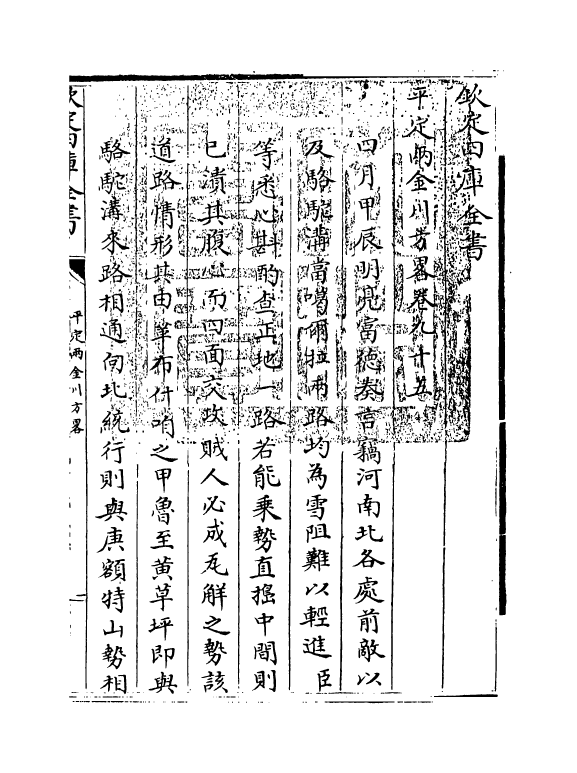 欽定四庫全書
平定兩金川方畧卷九十五
四月甲辰明亮富德奏言竊河南北各處前敵以
及駱駝溝當噶爾拉兩路均為雪阻難以輕進臣
等悉心斟酌查正地一路若能乗勢直搗中間則
已潰其腹心而四面交攻賊人必成瓦解之勢該
道路情形其由革布什咱之甲魯至黄草坪即與
駱駝溝來路相通向北統行則與庚額特山勢相
欽定四庫全書
平定兩金川方畧